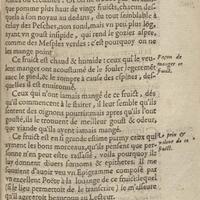 que pomme plus haut de vingt fruicts, chacun des-
quels a son noyau au dedans, du tout semblable à
celuy des Pesches, non rond, mais vn peu plus lõg,
ayant vn goust insipide, qui rend le gosier aspre,
comme des Mesples verdes: c'est pourquoy on ne
les mange point
Ce fruict est chaud & humide: ceux qui le veu-
lent manger ont accoustumé de le fouler legeremẽt
avec le pied, & le rompre à cause des espines, des-
quelles il est environné.
Façon de
manger ce
fruict.
Ceux qui n'ont iamais mangé de ce fruict, dés
qu'ils commencent à le flairer, il leur semble qu'ils
sentent des oignons pourris: mais apres qu'ils l'ont
gousté, ils le trouvent de meilleur goust & odeur,
que viande qu'ils ayent iamais mangé.
Ce fruict est en si grande estime parmy ceux qui
ayment les bons morceaux, qu'ils pensent que per-
sonne n'en peut estre rassasié, voila pourquoy ils
luy donnent divers surnoms & epithetes, il me
souvient d'avoir veu vn Epigramme composé par
vn excellent Poëte à la louange de ce fruict, lequel
(si le lieu permettoit de le transcrire) ie m'asseure
qu'il agreeroit beaucoup au Lecteur.
Le prix &
valeur de ce
fruict.